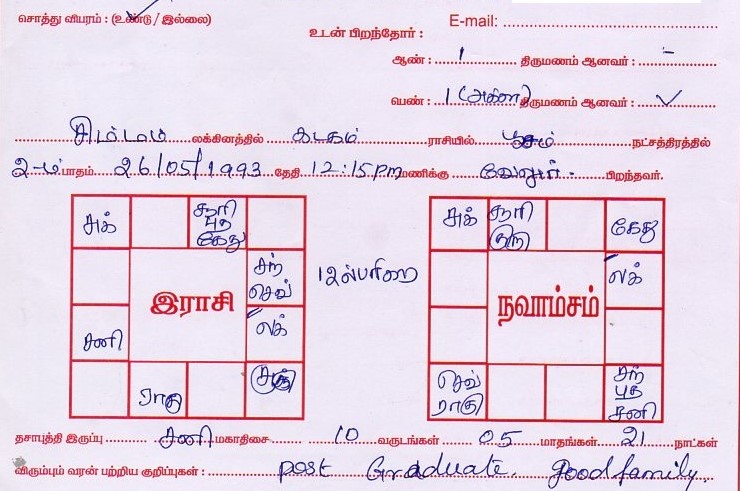 சொத்து விபரம் : (உண்டு / இல்லை) E-mail:
உடன் பிறந்தோர் :
ஆண் : 1 திருமணம் ஆனவர் : -
பெண் : 1 (அக்கா) திருமணம் ஆனவர் : ✓
சிம்மம் லக்கினத்தில் கடகம் ராசியில் பூசம் நட்சத்திரத்தில்
2-ம் பாதம் 26/05/1993 தேதி 12:15 Pm மணிக்கு வேலூர் பிறந்தவர்.
சுக் சூரி புத கேது
சந் செவ்
இராசி
லக்
சனி
ராகு குரு
சுக் சூரி குரு கேது
லக்
நவாம்சம்
செவ் ராகு சந் புத சனி
தசாபுத்தி இருப்பு : சனி மகாதிசை 10 வருடங்கள் 05 மாதங்கள் 21 நாட்கள்
விரும்பும் வரன் பற்றிய குறிப்புகள் : post Graduate. good family.